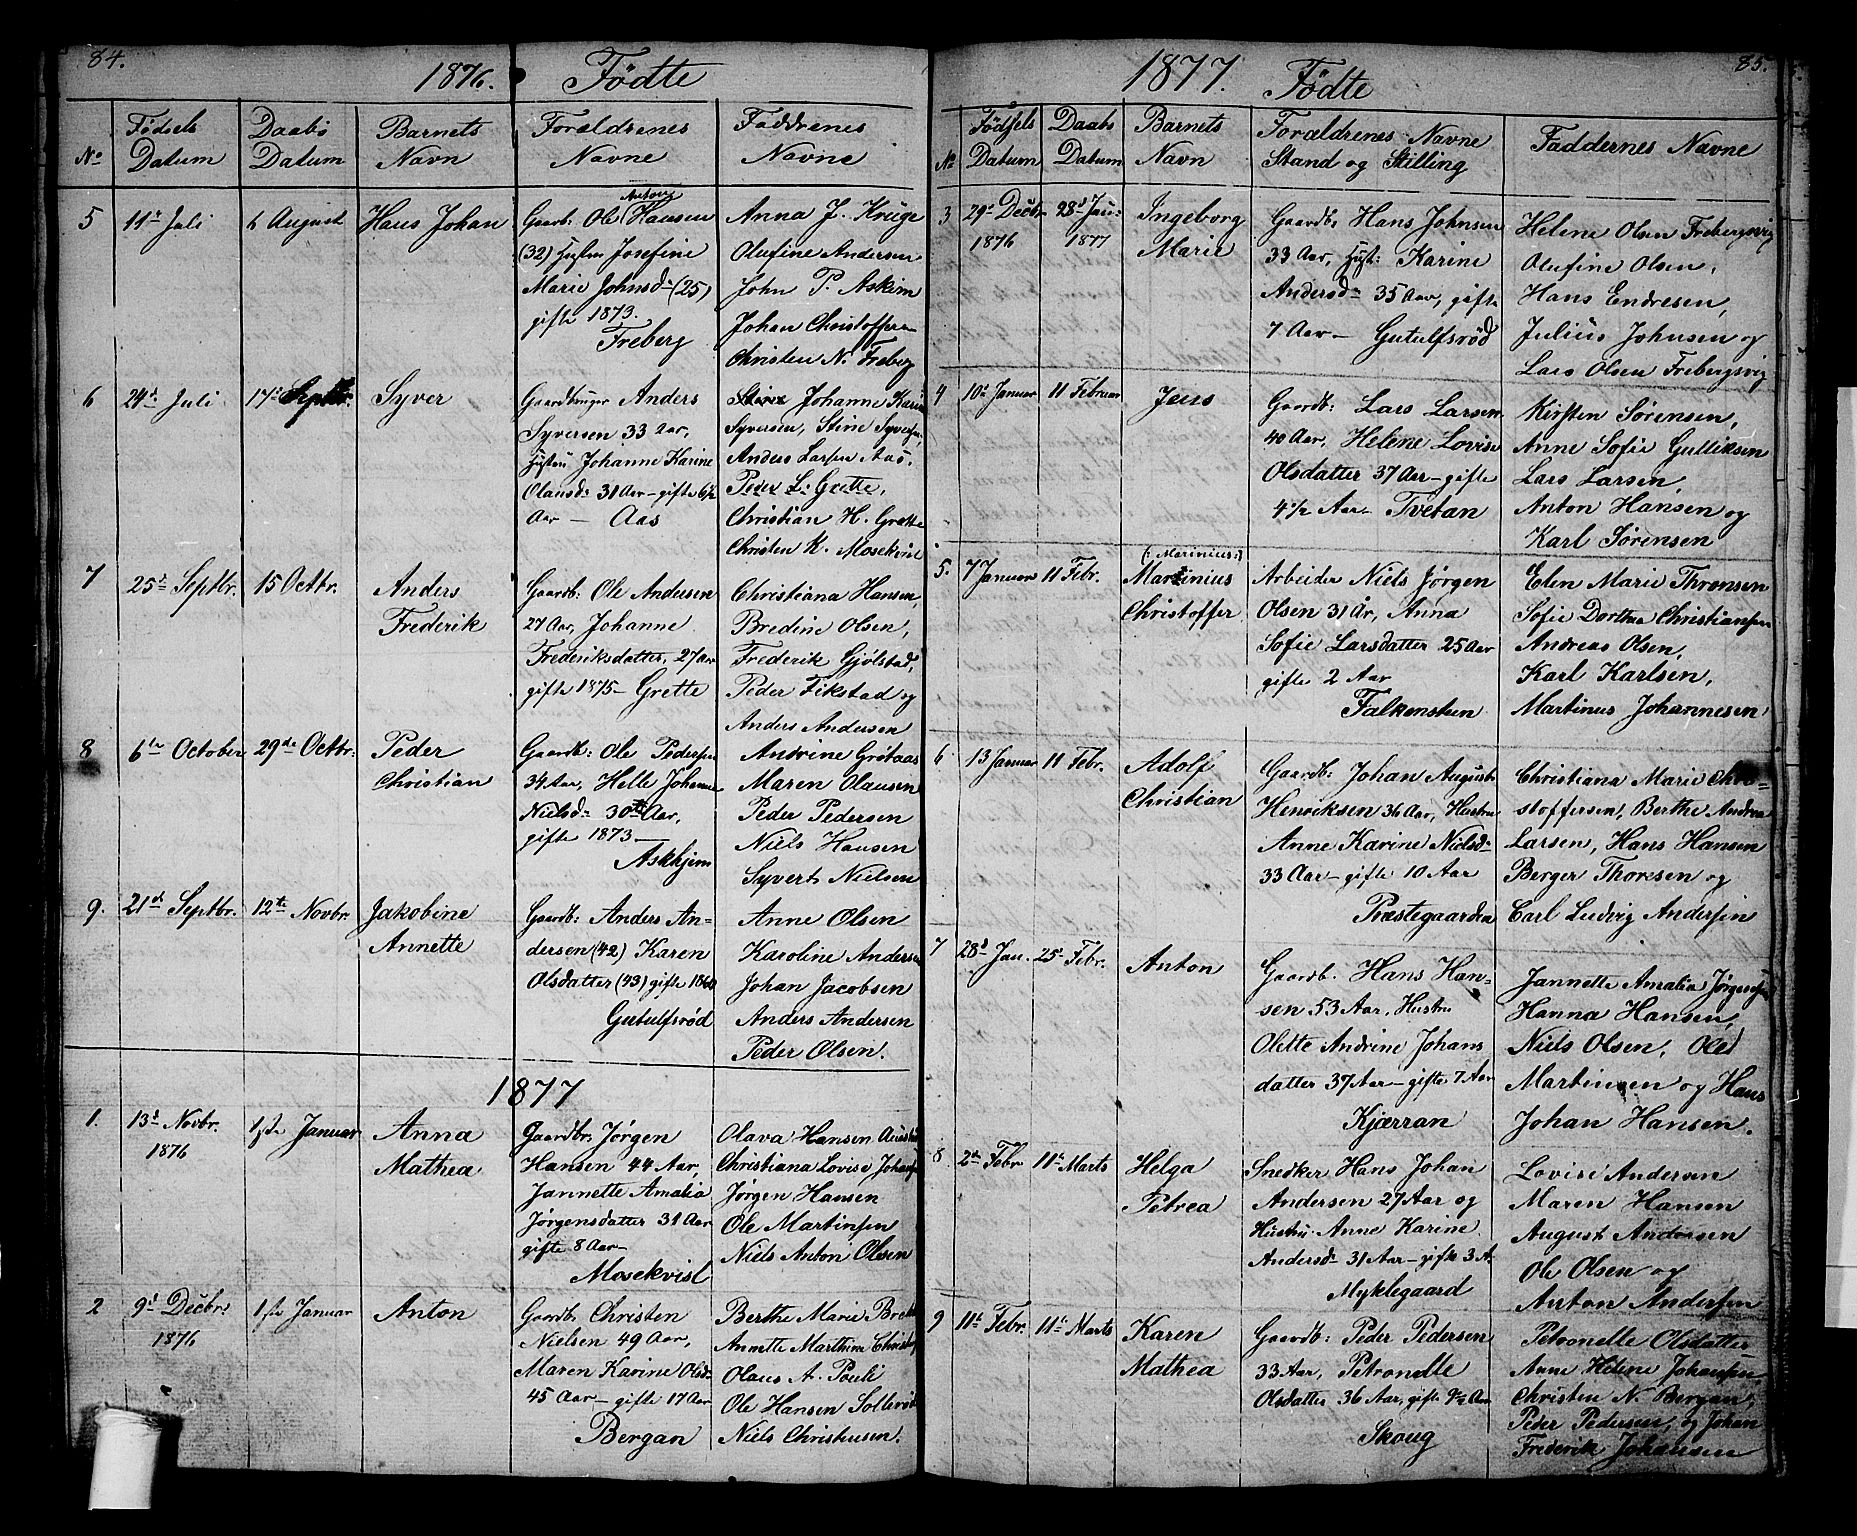 84.
1876.
Fødte
No
Fødsels Datum
Daabs Datum
Barnets Navn
Forældrenes Navne
Faddrenes Navne
5
11te Juli
6 August
Hans Johan
Anton
Gaardb. Ole Hansen
(32) Hustru Josefine
Marie Johnsd: (25)
gifte 1873.
Freberg
Anna J. Kruge
Olufine Andersen
John P. Askim
Johan Christoffersen
Christen N. Freberg
6
24de Juli
17de Septbr.
Syver
Gaardbruger Anders
Syversen 33 Aar,
Hustru Johanne Karine
Olausd: 31 Aar – gifte 6½
Aar – Aas
Johanne Karin
Syversen, Stine Syversen,
Anders Larsen Aas,
Peder L. Grette,
Christian H. Grette
Christen K. Mosekvist
7
25de Septbr.
15 Octbr.
Anders
Frederik
Gaardb: Ole Andersen
27 Aar, Johanne
Frederiksdatter, 27 Aar
gifte 1875 – Grette
Christiana Hansen,
Bredine Olsen,
Frederik Gjølstad,
Peder Fikstad og
Anders Andersen
8
6te October
29de Octbr.
Peder
Christian
Gaardb: Ole Pedersen
34 Aar, Helle Johanne
Nielsd: 30 Aar,
gifte 1873 –
Askhjem
Andrine Grøtaas
Maren Olausen
Peder Pedersen
Niels Hansen
Syvert Nielsen
9.
21de Septbr.
12te Novbr.
Jakobine
Annette
Gaardb: Anders An-
dersen (42) Karen
Olsdatter (43) gifte 1860
Gutulfsrød
Anne Olsen
Karoline Andersen
Johan Jacobsen
Anders Andersen
Peder Olsen.
1877
1.
13de Novbr.
1876
1ste Januar
Anna
Mathea
Gaardbr. Jørgen
Hansen 44 Aar,
Jannette Amalia
Jørgensdatter 31 Aar
gifte 8 Aar –
Mosekvist
Olava Hansen
Christiana Lovise Johansen
Jørgen Hansen
Ole Martinsen
Niels Anton Olsen
2
9de Decbr.
1876
1ste Januar
Anton
Gaardb. Christen
Nielsen 49 Aar,
Maren Karine Olsd:
45 Aar – gifte 17 Aar
Bergan
Berthe Marie
Annette Marthine
Olaus A. Pauli
Ole Hansen
Niels Christensen.
85.
1877.
Fødte
No
Fødsels Datum
Daabs Datum
Barnets Navn
Forældrenes Navne
Stand og Stilling
Faddernes Navne
3
29de Decbr.
1876
28de Jan:
1877
Ingeborg
Marie
Gaardb: Hans Johnsen
33 Aar, Hust: Karine
Andersd: 35 Aar, gifte
7 Aar – Gutulfsrød
Helene Olsen Frebergsvig
Olufine Olsen,
Hans Endresen,
Julius Johnsen og
Lars Olsen Frebergsvig
4
10de Januar
11 Februar
Jens
Gaardb: Lars Larsen
40 Aar, Helene Lovise
Olsdatter 37 Aar – gifte
4½ Aar – Tvetan
Kirsten Sørensen,
Anne Sofie Gulliksen
Lars Larsen,
Anton Hansen og
Karl Sørensen
5.
7 Januar
11 Febr.
(: Marinius:)
Martinius
Christoffer
Arbeider Niels Jørgen
Olsen 31 År, Anna
Sofie Larsdatter 25 Aar
gifte 2 Aar
Falkensten
Elen Marie Thronsen
Sofie Dorthea Christiansen
Andreas Olsen,
Karl Karlsen,
Martinus Johannesen
6
13 Januar
11 Febr.
Adolf
Christian
Gaardb: Johan August
Henriksen 36 Aar, Hustru
Anne Karine Nielsd:
33 Aar – gifte 10 Aar
Præstegaarden
Christiana Marie Chri-
stoffersen, Berthe Andrea
Larsen, Hans Hansen
Berger Thoresen og
Carl Ludvig Andersen
7
28de Jan.
25de Febr.
Anton
Gaardb. Hans Han-
sen 53 Aar, Hustru
Olette Andrine Johans
datter 37 Aar – gifte 7 Aar
Kjærran
Jannette Amalia Jørgensen
Hanna Hansen,
Niels Olsen, Ole
Martinsen og Hans
Johan Hansen.
8
2den Febr
11te Marts
Helga
Petrea
Snedker Hans Johan
Andersen 27 Aar og
Hustru Anne Karine
Andersd: 31 Aar – gifte 3 A.
Myklegaard
Lovise Andersen
Maren Hansen
August Andersen
Ole Olsen og
Anton Andersen
9
11te Febr.
11te Marts
Karen
Mathea
Gaardb: Peder Pedersen
33 Aar, Petronelle
Olsdatter 36 Aar, gifte 9½ Aar
Skoug
Petronelle Olsdatter
Anne Helene Johansen
Christen N. Bergan,
Peder Pedersen, og Johan
Frederik Johansen